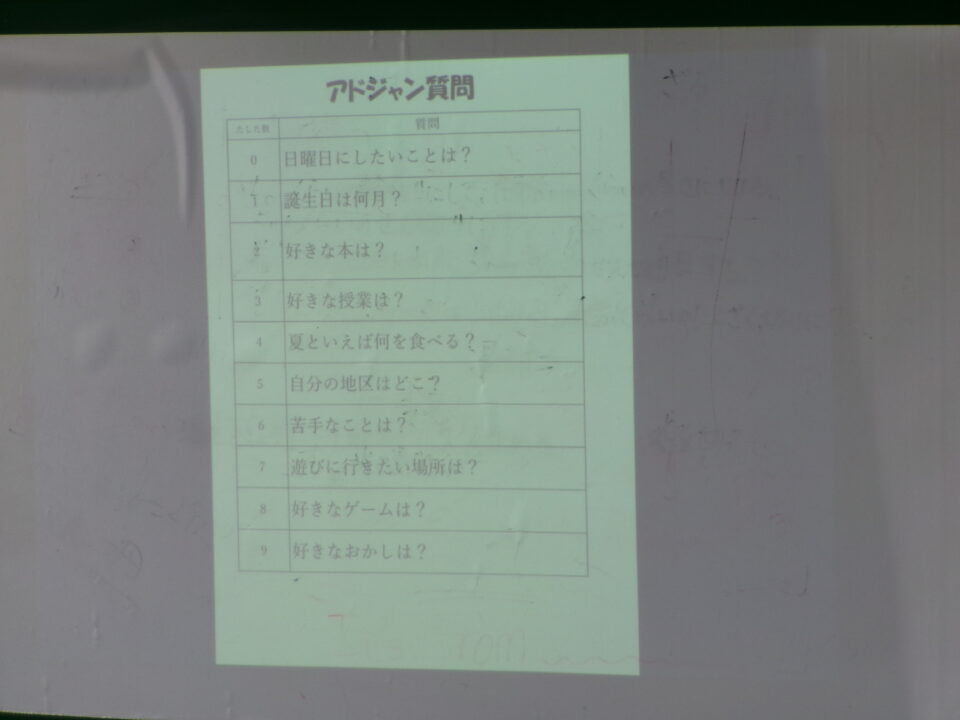 アドジャン質問
たした数 質問
0 日曜日にしたいことは？
1 誕生日は何月？
2 好きな本は？
3 好きな授業は？
4 夏といえば何を食べる？
5 自分の地区はどこ？
6 苦手なことは？
7 遊びに行きたい場所は？
8 好きなゲームは？
9 好きなおかしは？